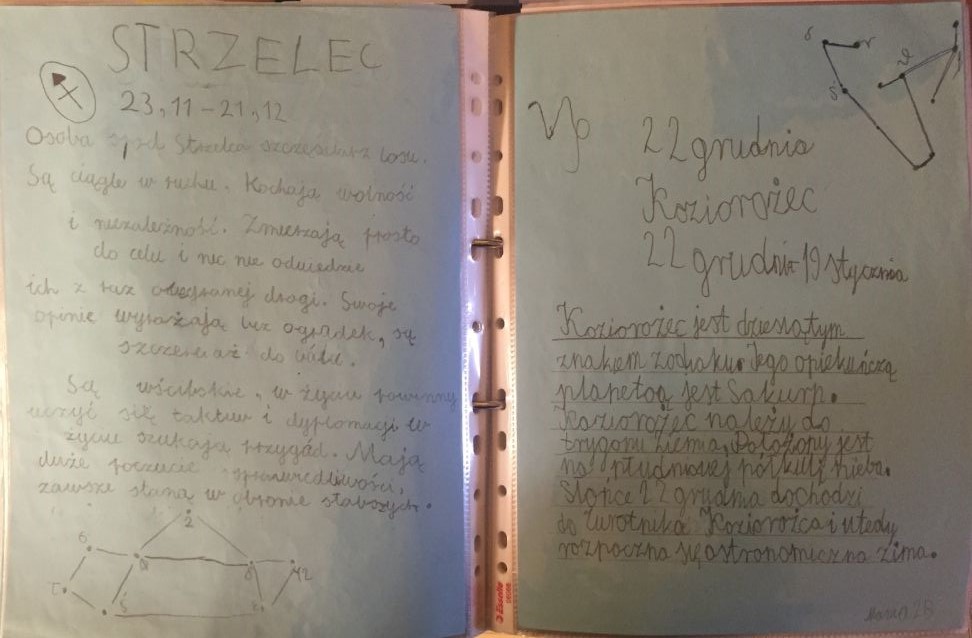 STRZELEC
23,11-21,12
Osoba spod Strzelca szczęściarz losu.
Są ciągle w ruchu. Kochają wolność
i niezależność. Zmierzają prosto
do celu i nic nie odwiedzie
ich z raz obranej drogi. Swoje
opinie wyrażają bez ogródek, są
szczere aż do bólu.
Są wścibskie, w życiu powinny
uczyć się taktuw i dyplomacji w
życiu szukają przygód. Mają
duże poczucie sprawiedliwości,
zawsze staną w obronie słabszych.
2
6
12
22 grudnia
Koziorożec
22 grudnia-19 stycznia
Koziorożec jest dziesiątym
znakiem zodiaku. Jego opiekuńczą
planetą jest Saturn.
Koziorożec należy do
trygonu ziemia, Położony jest
na południowej półkuli nieba.
Słońce 22 grudnia dochodzi
do zwrotnika Koziorożca i wtedy
rozpoczna się astronomiczna zima.
Esselte